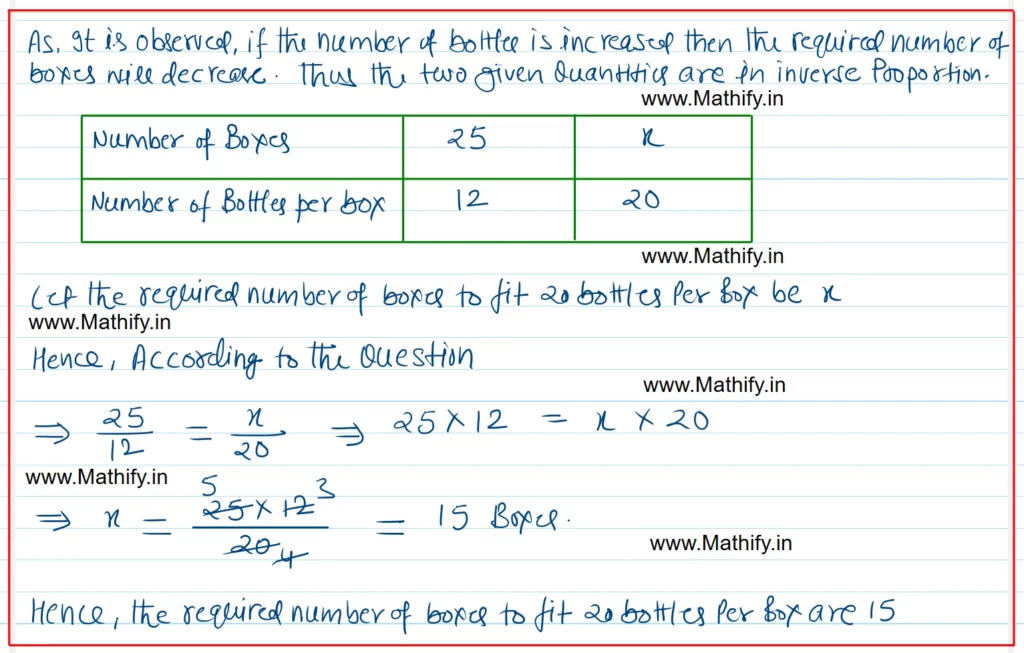 As, It is observed, if the number of bottles is increased then the required number of
boxes will decrease. Thus the two given Quantities are in inverse Proportion.
www.Mathify.in
Number of Boxes 25 x
Number of Bottles per box 12 20
www.Mathify.in
Let the required number of boxes to fit 20 bottles Per Box be x
www.Mathify.in
Hence, According to the Question
www.Mathify.in
⇒ 25/12 = x/20 ⇒ 25 × 12 = x × 20
www.Mathify.in
⇒ x = 25 5 × 12 3 / 20 4 = 15 Boxes.
www.Mathify.in
Hence, the required number of boxes to fit 20 bottles Per Box are 15